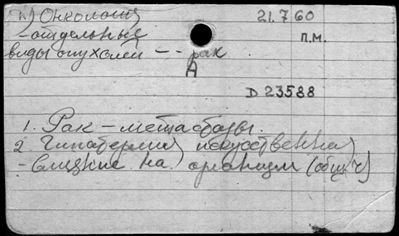 n) Онкология
21.7.60
- отдельные
п.м.
виды опухолей -- рак
А
D 23588
1. Рак - метастазы.
2. Гипотермия искусственная
- влияние на организм (общ. ч)